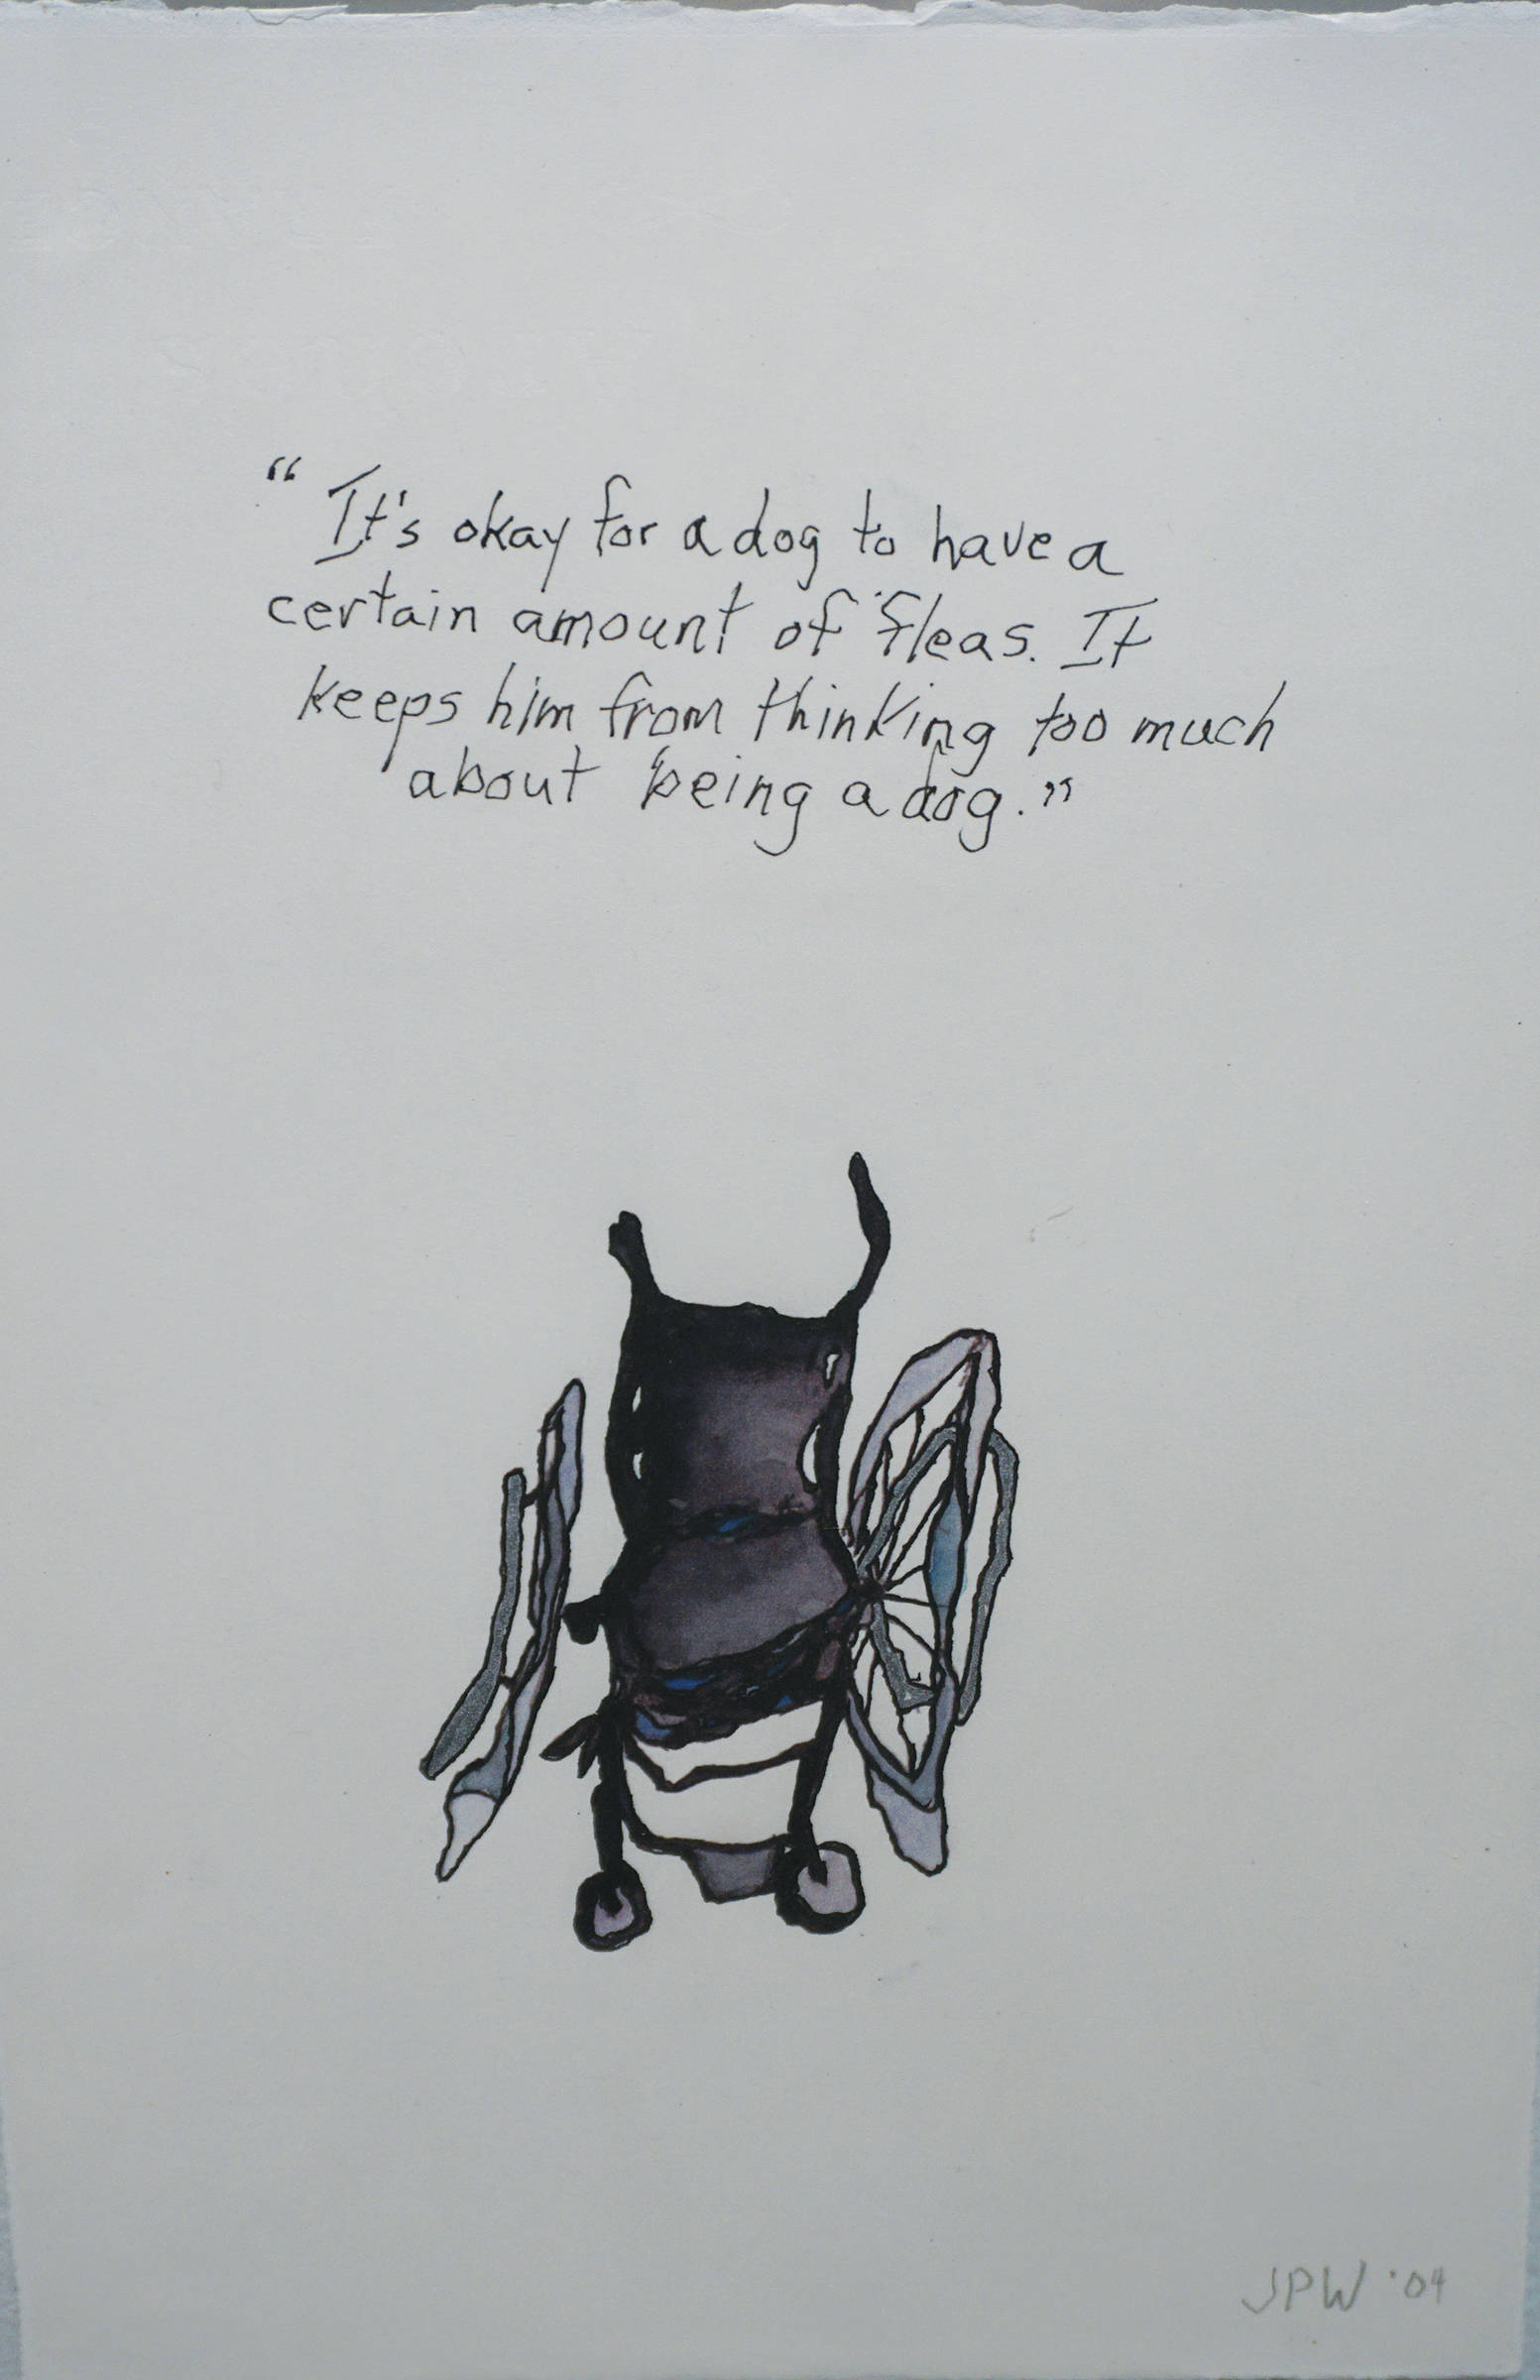 “It's okay for a dog to have a
certain amount of fleas. It
keeps him from thinking too much
about being a dog.”
JPW '04